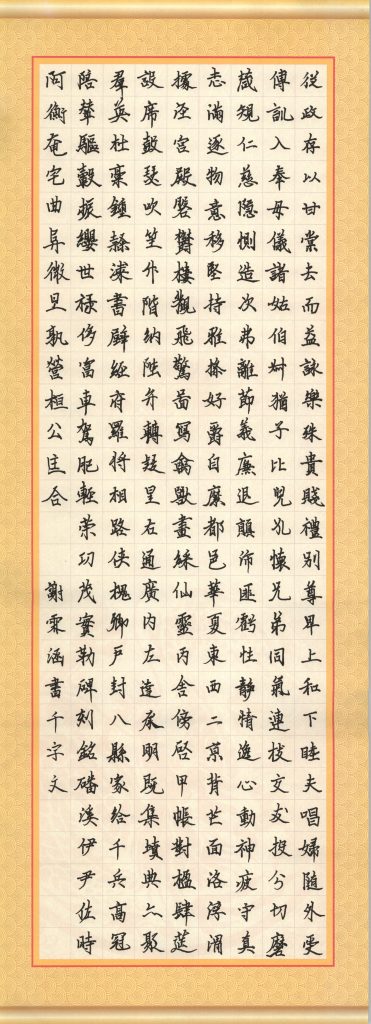 從政存以甘棠去而益詠樂殊貴賤禮別尊卑上和下睦夫唱婦隨外受
傳訓入奉母儀諸姑伯叔猶子比兒孔懷兄弟同氣連枝交友投分切磨
箴規仁慈隱惻造次弗離節義廉退顛沛匪虧性靜情逸心動神疲守真
志滿逐物意移堅持雅操好爵自縻都邑華夏東西二京背芒面洛浮渭
據涇宮殿磐鬱樓觀飛驚圖寫禽獸畫綵仙靈丙舍傍啓甲帳對楹肆筵
設席鼓瑟吹笙升階納陛弁轉疑星右通廣內左達承明既集墳典亦聚
羣英杜稾鍾隸漆書壁經府羅將相路俠槐卿戶封八縣家給千兵高冠
陪輦驅轂振纓世祿侈富車駕肥輕策功茂實勒碑刻銘磻溪伊尹佐時
阿衡奄宅曲阜微旦孰營桓公匡合 謝霖涵書千字文